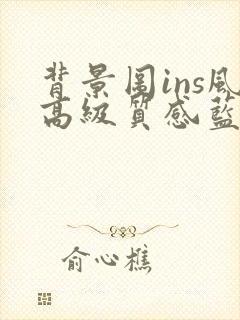 背景图ins风
高级质感蓝
俞心樵